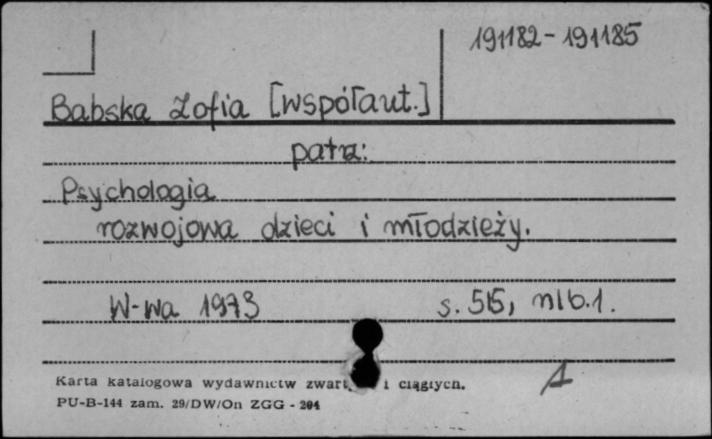 191182-191185
Babska Zofia [współaut.]
patrz:
Psychologia
rozwojowa dzieci i młodzieży.
W-wa 1973 s. 515, nlb.1.
Karta katalogowa wydawnictw i ciągłych.
PU-B-144 zam. 29/DW/On ZGG - 204
1